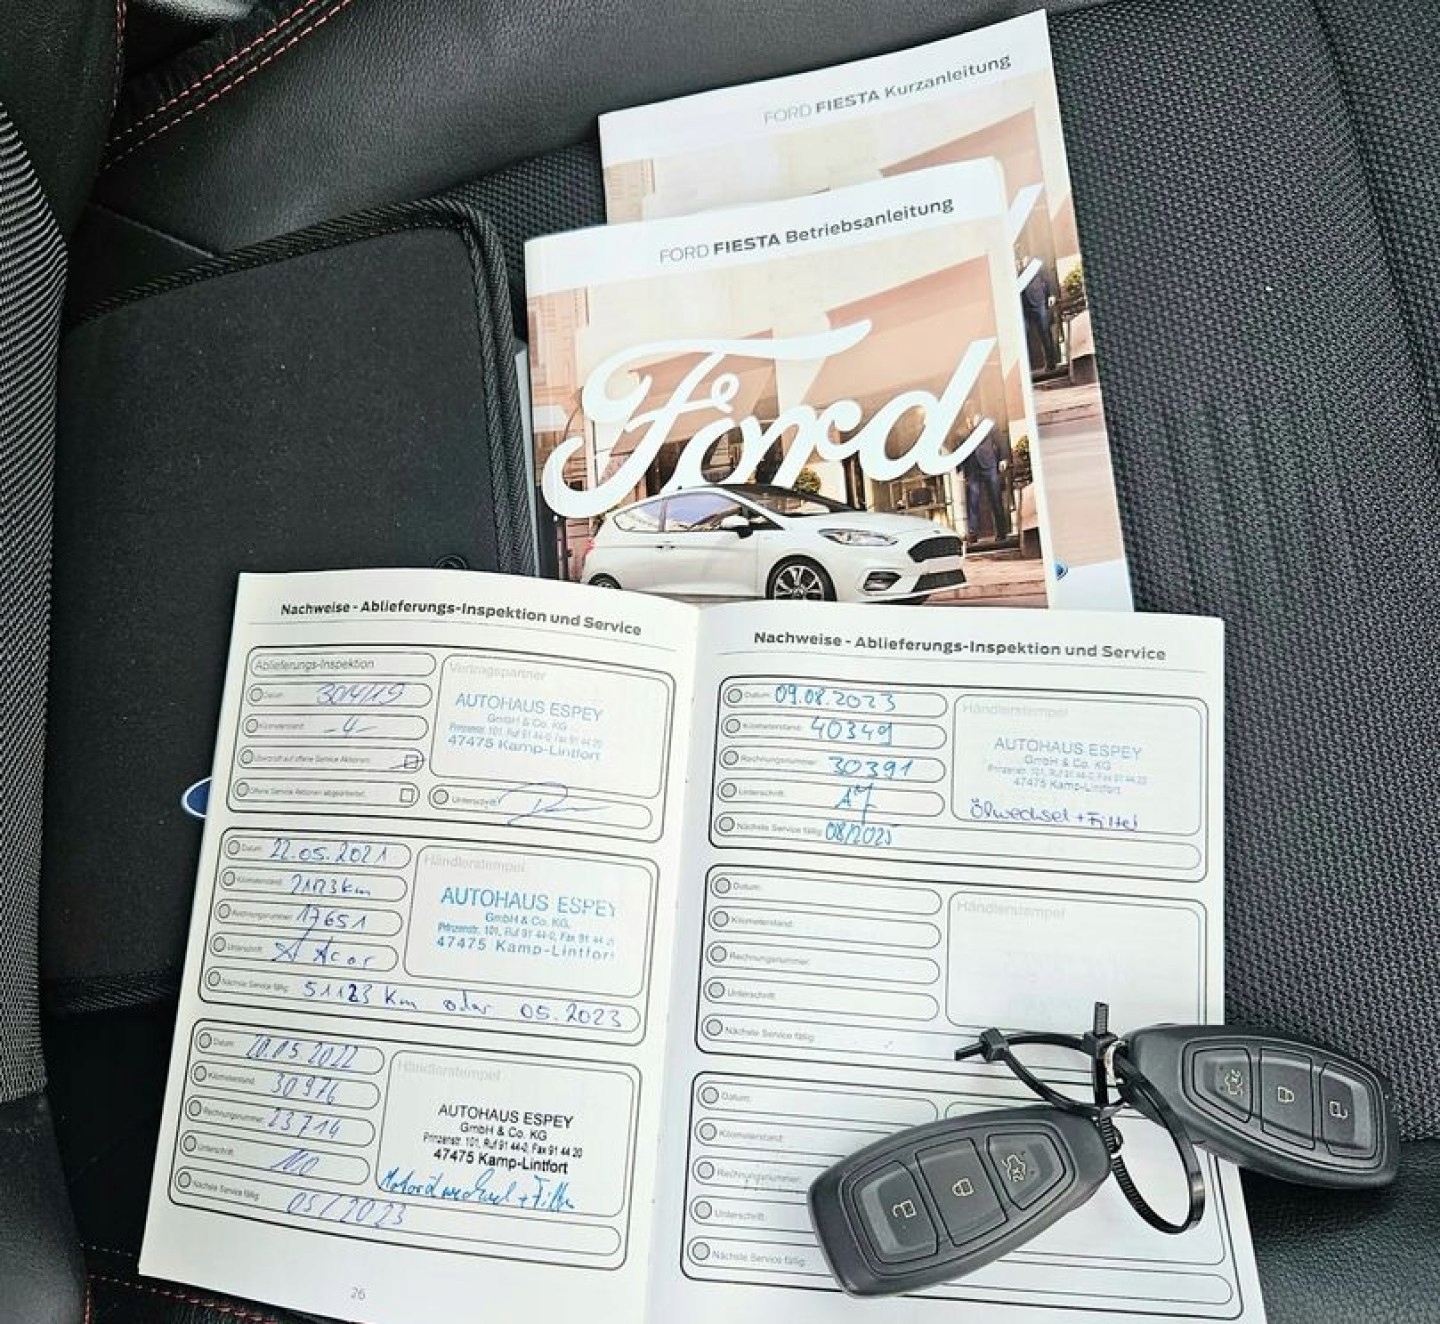 FORD FIESTA Kurzanleitung
FORD FIESTA Betriebsanleitung
Ford
Nachweise - Ablieferungs-Inspektion und Service
Ablieferungs-Inspektion
Datum: 30/4/19
Kilometerstand: -4-
Überprüft auf offene Service Aktionen:
Offene Service Aktionen abgearbeitet:
Vertragspartner
AUTOHAUS ESPEY
GmbH & Co. KG
Prinzenstr. 101, Ruf 91 44-0, Fax 91 44 20
47475 Kamp-Lintfort
Unterschrift:
Datum: 22.05.2021
Kilometerstand: 21123 km
Rechnungsnummer: 17651
Unterschrift:
Nächste Service fällig: 51123 km oder 05.2023
Händlerstempel
AUTOHAUS ESPEY
GmbH & Co. KG,
Prinzenstr. 101, Ruf 91 44-0, Fax 91 44 20
47475 Kamp-Lintfort
Datum: 20.05.2022
Kilometerstand: 30976
Rechnungsnummer: 23714
Unterschrift:
Nächste Service fällig: 05/2023
Händlerstempel
AUTOHAUS ESPEY
GmbH & Co. KG
Prinzenstr. 101, Ruf 91 44-0, Fax 91 44 20
47475 Kamp-Lintfort
Motorölwechsel + Filter
26
Nachweise - Ablieferungs-Inspektion und Service
Datum: 09.08.2023
Kilometerstand: 40349
Rechnungsnummer: 30391
Unterschrift:
Nächste Service fällig: 08/2025
Händlerstempel
AUTOHAUS ESPEY
GmbH & Co. KG
Prinzenstr. 101, Ruf 91 44-0, Fax 91 44 20
47475 Kamp-Lintfort
Ölwechsel + Filter
Datum:
Kilometerstand:
Rechnungsnummer:
Unterschrift:
Nächste Service fällig:
Händlerstempel
Datum:
Kilometerstand:
Rechnungsnummer:
Unterschrift:
Nächste Service fällig:
2x
2x